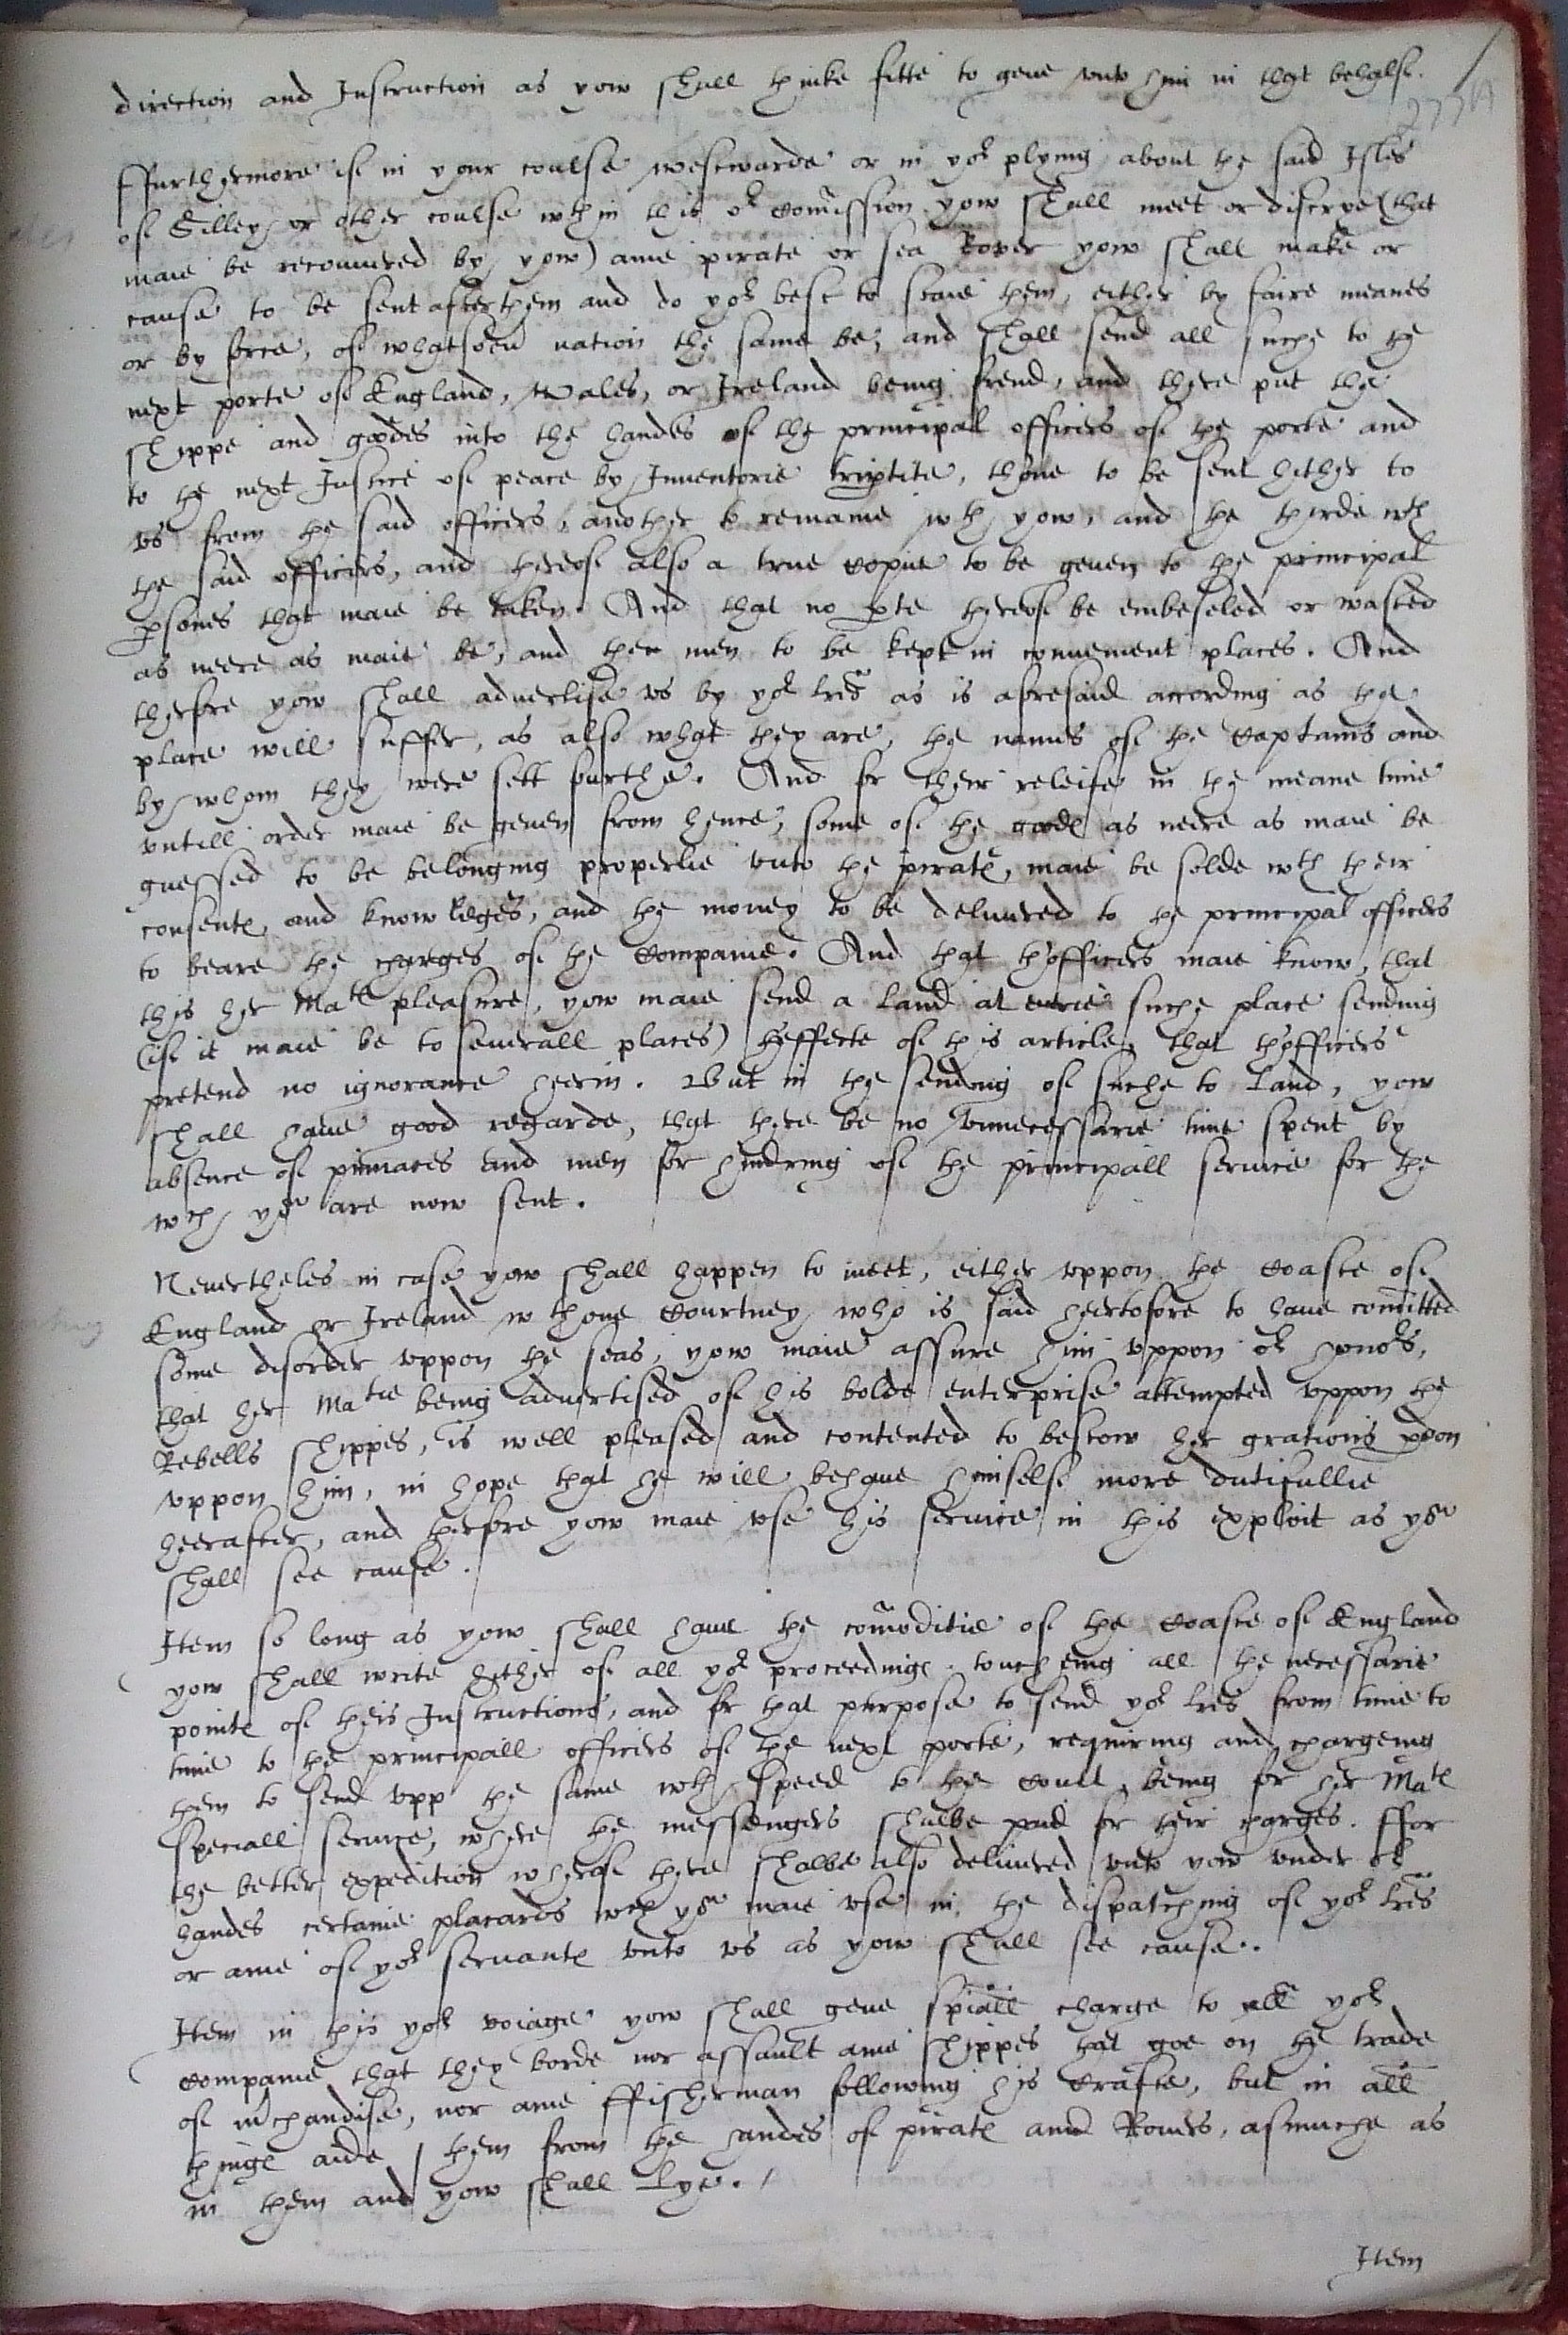 direction and Instruction as yow shall thinke fitte to geue vnto him in that behalfe.
ffurthermore if in your course westwarde or in yor plying about the said Isles
of Silley or other course wthin this or comission yow shall meet or discrye (that
maie be recouured by yow) anie pirate or sea Rover yow shall make or
cause to be sent after them and do yor best to staie them, either by faire meanes
or by force, of whatsoeu nation the same be, and shall send all suche to the
next porte of England, Wales, or Ireland being frend, and there put the
shippe and goodes into the handes of the principall officers of the porte and
to the next Justice of peace by Inuentorie triptite, thone to be sent hither to
vs from the said officers, another to remaine wth yow, and the thirde wth
the said officers, and thereof also a true copie to be geuen to the principal
psones that maie be taken. And that no pte thereof be embeseled or wasted
as neere as maie be, and the men to be kept in conuenient places. And
therfore yow shall aduertise vs by yor lres as is aforesaid according as the
place will suffer, as also what they are, the names of the Captains and
by whom they were sett furthe. And for their releife in the meane time
vntill order maie be geuen from hence, some of the goodes as neere as maie be
guessed to be belonging properlie vnto the pirates, maie be solde wth their
consentes and knowleges, and the money to be deliuered to the principal officers
to beare the charges of the Companie. And that thofficers maie know, that
this her Mates pleasure, yow maie send a land at euerie suche place sending
(if it maie be to seuerall places) theffecte of this article, that thofficers
pretend no ignorance heerin. But in the sending of suche to land, yow
shall haue good regarde, that there be no vnnecessarie time spent by
absence of pinnaces and men for hindring of the principall seruice for the
wch yow are now sent.
Neuertheles in case yow shall happen to meet, either vppon the Coaste of
England or Ireland wth one Courtney who is said heertofore to haue comitted
some disorder vppon the seas, yow maie assure him vppon or honors,
that her Matie being aduertised of his bolde enterprise attempted vppon the
Rebells shippes, is well pleased and contented to bestow her gratious pdon
vppon him, in hope that he will behaue himselfe more dutifullie
heerafter, and therfore yow maie vse his seruice in this exploit as yow
shall see cause.
Item so long as yow shall haue the comoditie of the Coaste of England
yow shall write hither of all yor proceedinges touching all the necessarie
pointes of theis Instructions, and for that purpose to send yor lres from time to
time to the principall officers of the next porte, requiring and chargeing
them to send vpp the same wth speed to the Court, being for her Mates
speciall seruice, where the messengers shalbe paid for their charges. ffor
the better expedition wherof there shalbe also deliuered vnto yow vnder or
handes certaine placards wch yow maie vse in the dispatching of yor lres
or anie of yor seruantes vnto vs as yow shall see cause.
Item in this yor voiage yow shall geue spiall charge to all yor
companie that they borde nor assault anie shippes that goe on the trade
of mchandise, nor anie ffisherman following his crafte, but in all
thinges aide them from the handes of pirates and Rouers, asmuche as
in them and yow shall lye. /
Item